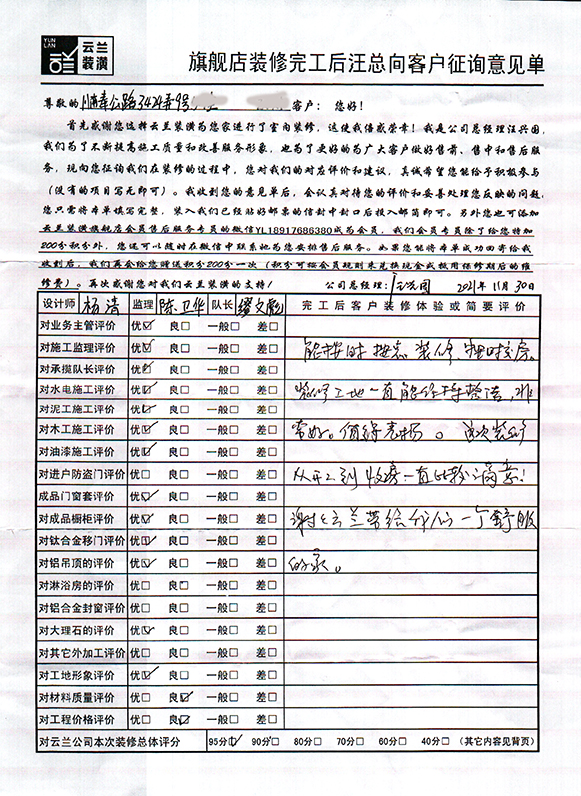 YUN LAN
云兰装潢
旗舰店装修完工后汪总向客户征询意见单
尊敬的 浦秀公路3424弄9号 客户： 您好！
首先感谢您选择云兰装潢为您家进行了室内装修，这使我倍感荣幸！我是公司总经理汪兴国，
我们为了不断提高施工质量和改善服务形象，也为了更好的为广大客户做好售前、售中和售后服
务，现向您征询我们在装修的过程中，您对我们的对应评价和建议，真诚希望您能给予积极参与
（没有的项目写无即可）。我收到您的意见单后，会认真对待您的评价和妥善处理您反映的问题，
您只需将本单填写完整，装入我们已经贴好邮票的信封中封口后投入邮筒即可。另外您也可添加
云兰装潢旗舰店会员售后服务专员的微信YL18917686380成为会员，我们会员专员除了给您赠加
200分积分外，您还可以随时在微信中联系她为您安排售后服务。如果您能将本单成功回寄给我
收到后，我们再会给您赠送积分200分一次（积分可按会员规则来兑换现金或抵用保修期后的维
修费）。再次感谢您对我们云兰装潢的支持！ 公司总经理：汪兴国 2021年 11月 30日
设计师 杨清 监理 陈卫华 队长 缪文彪 完工后客户装修体验或简要评价
对业务主管评价 优☑ 良□ 一般□ 差□
对施工监理评价 优☑ 良□ 一般□ 差□ 能按时按点装修，按时交房。
对承揽队长评价 优☑ 良□ 一般□ 差□
对水电施工评价 优☑ 良□ 一般□ 差□ 装修工地一直能保持整洁，非
对泥工施工评价 优☑ 良□ 一般□ 差□
对木工施工评价 优☑ 良□ 一般□ 差□ 常好。值得表扬。这次装修
对油漆施工评价 优☑ 良□ 一般□ 差□
对进户防盗门评价 优□ 良□ 一般□ 差□ 从开工到收房一直比较满意！
成品门窗套评价 优☑ 良□ 一般□ 差□
对成品橱柜评价 优☑ 良□ 一般□ 差□ 谢谢云兰带给我们一个舒服
对钛合金移门评价 优☑ 良□ 一般□ 差□
对铝吊顶的评价 优☑ 良□ 一般□ 差□ 的家。
对淋浴房的评价 优□ 良□ 一般□ 差□
对铝合金封窗评价 优□ 良□ 一般□ 差□
对大理石的评价 优☑ 良□ 一般□ 差□
对其它外加工评价 优□ 良□ 一般□ 差□
对工地形象评价 优☑ 良□ 一般□ 差□
对材料质量评价 优□ 良☑ 一般□ 差□
对工程价格评价 优□ 良☑ 一般□ 差□
对云兰公司本次装修总体评分 95分☑ 90分□ 80分□ 70分□ 60分□ 40分□ （其它内容见背页）